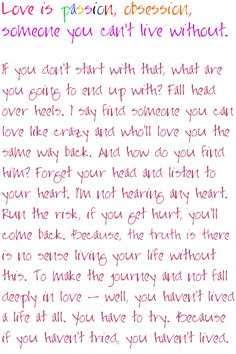 Love is passion, obsession,
someone you can't live without.
If you don't start with that, what are
you going to end up with? Fall head
over heels. I say find someone you can
love like crazy and who'll love you the
same way back. And how do you find
him? Forget your head and listen to
your heart. I'm not hearing any heart.
Run the risk, if you get hurt, you'll
come back. Because, the truth is there
is no sense living your life without
this. To make the journey and not fall
deeply in love — well, you haven't lived
a life at all. You have to try. Because
if you haven't tried, you haven't lived.